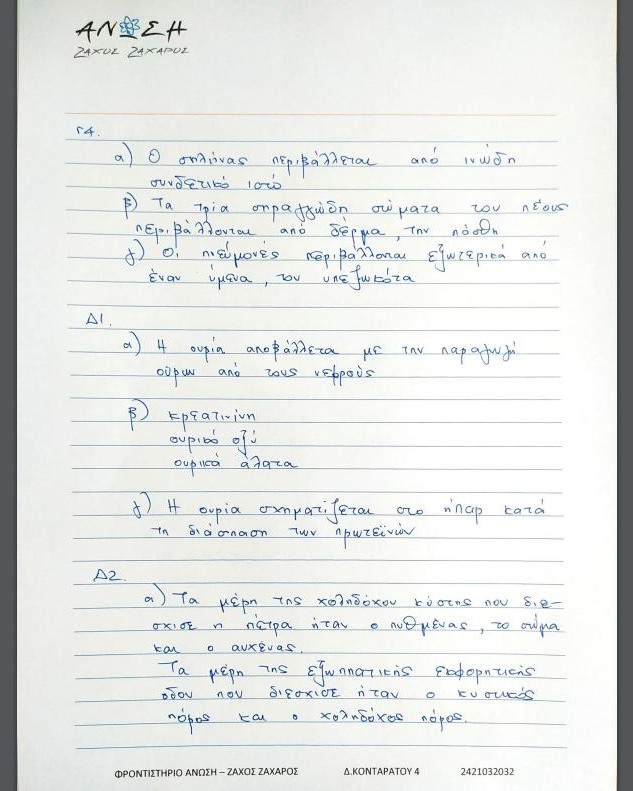 ΑΝΩΣΗ
ΖΑΧΟΣ ΖΑΧΑΡΟΣ
Γ4.
α) Ο σπλήνας περιβάλλεται από ινώδη
συνδετικό ιστό
β) Τα τρία σηραγγώδη σώματα του πέους
περιβάλλονται από δέρμα, την πόσθη
γ) Οι πνεύμονές περιβάλλονται εξωτερικά από
έναν υμένα, τον υπεζωκότα
Δ1.
α) Η ουρία αποβάλλεται με την παραγωγή
ούρων από τους νεφρούς
β) κρεατινίνη
ουρικό οξύ
ουρικά άλατα
γ) Η ουρία σχηματίζεται στο ήπαρ κατά
τη διάσπαση των πρωτεϊνών
Δ2.
α) Τα μέρη της χοληδόχου κύστης που διέ-
σχισε η πέτρα ήταν ο πυθμένας, το σώμα
και ο αυχένας.
Τα μέρη της εξωηπατικής εκφορητικής
οδού που διέσχισε ήταν ο κυστικός
πόρος και ο χοληδόχος πόρος.
ΦΡΟΝΤΙΣΤΗΡΙΟ ΑΝΩΣΗ – ΖΑΧΟΣ ΖΑΧΑΡΟΣ Δ.ΚΟΝΤΑΡΑΤΟΥ 4 2421032032